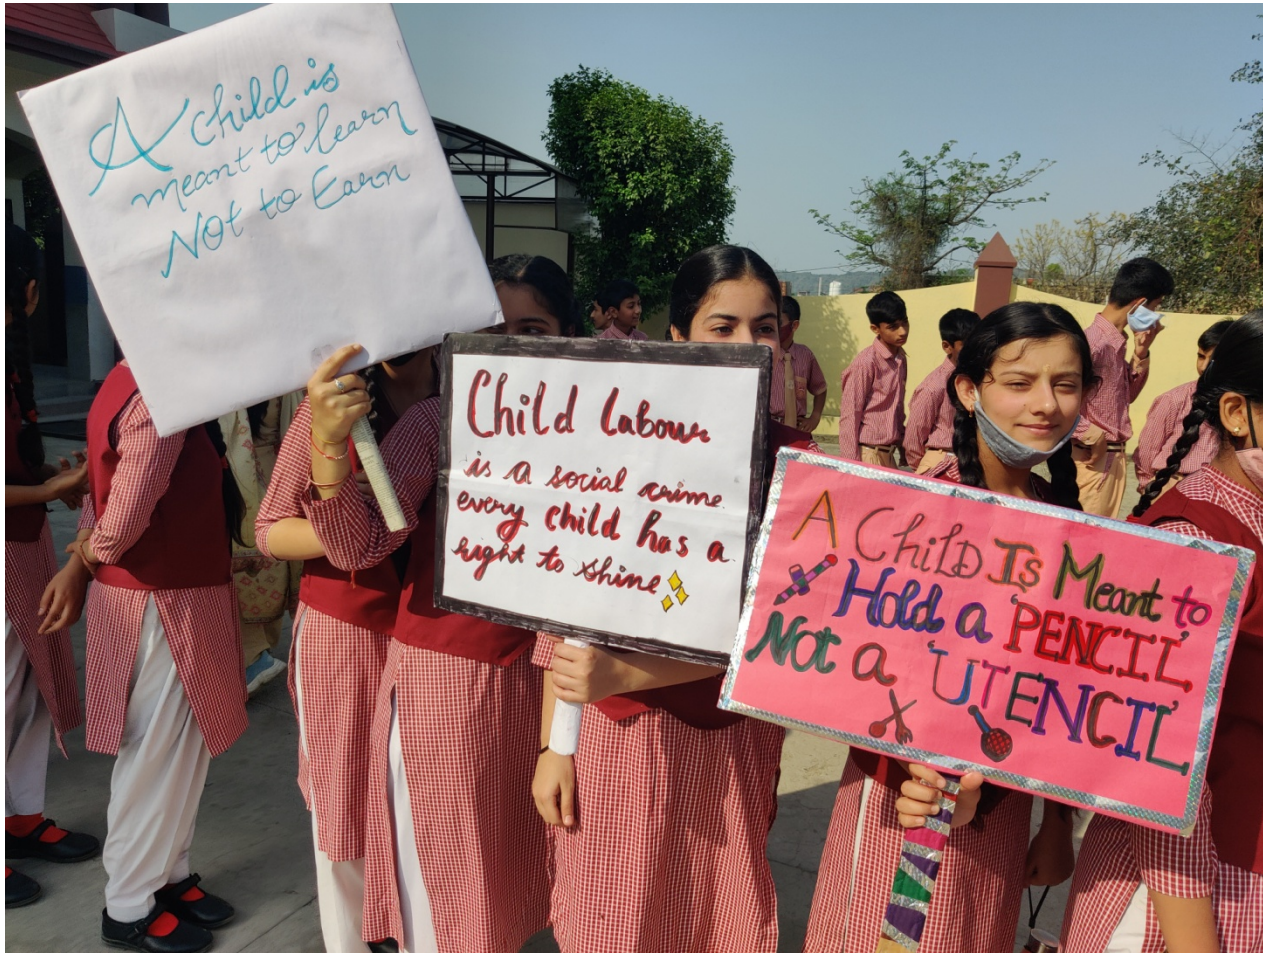 A child is
meant to learn
Not to Earn
Child labour
is a social crime.
every child has a
right to shine
A Child Is Meant to
Hold a 'PENCIL'
Not a 'UTENCIL'